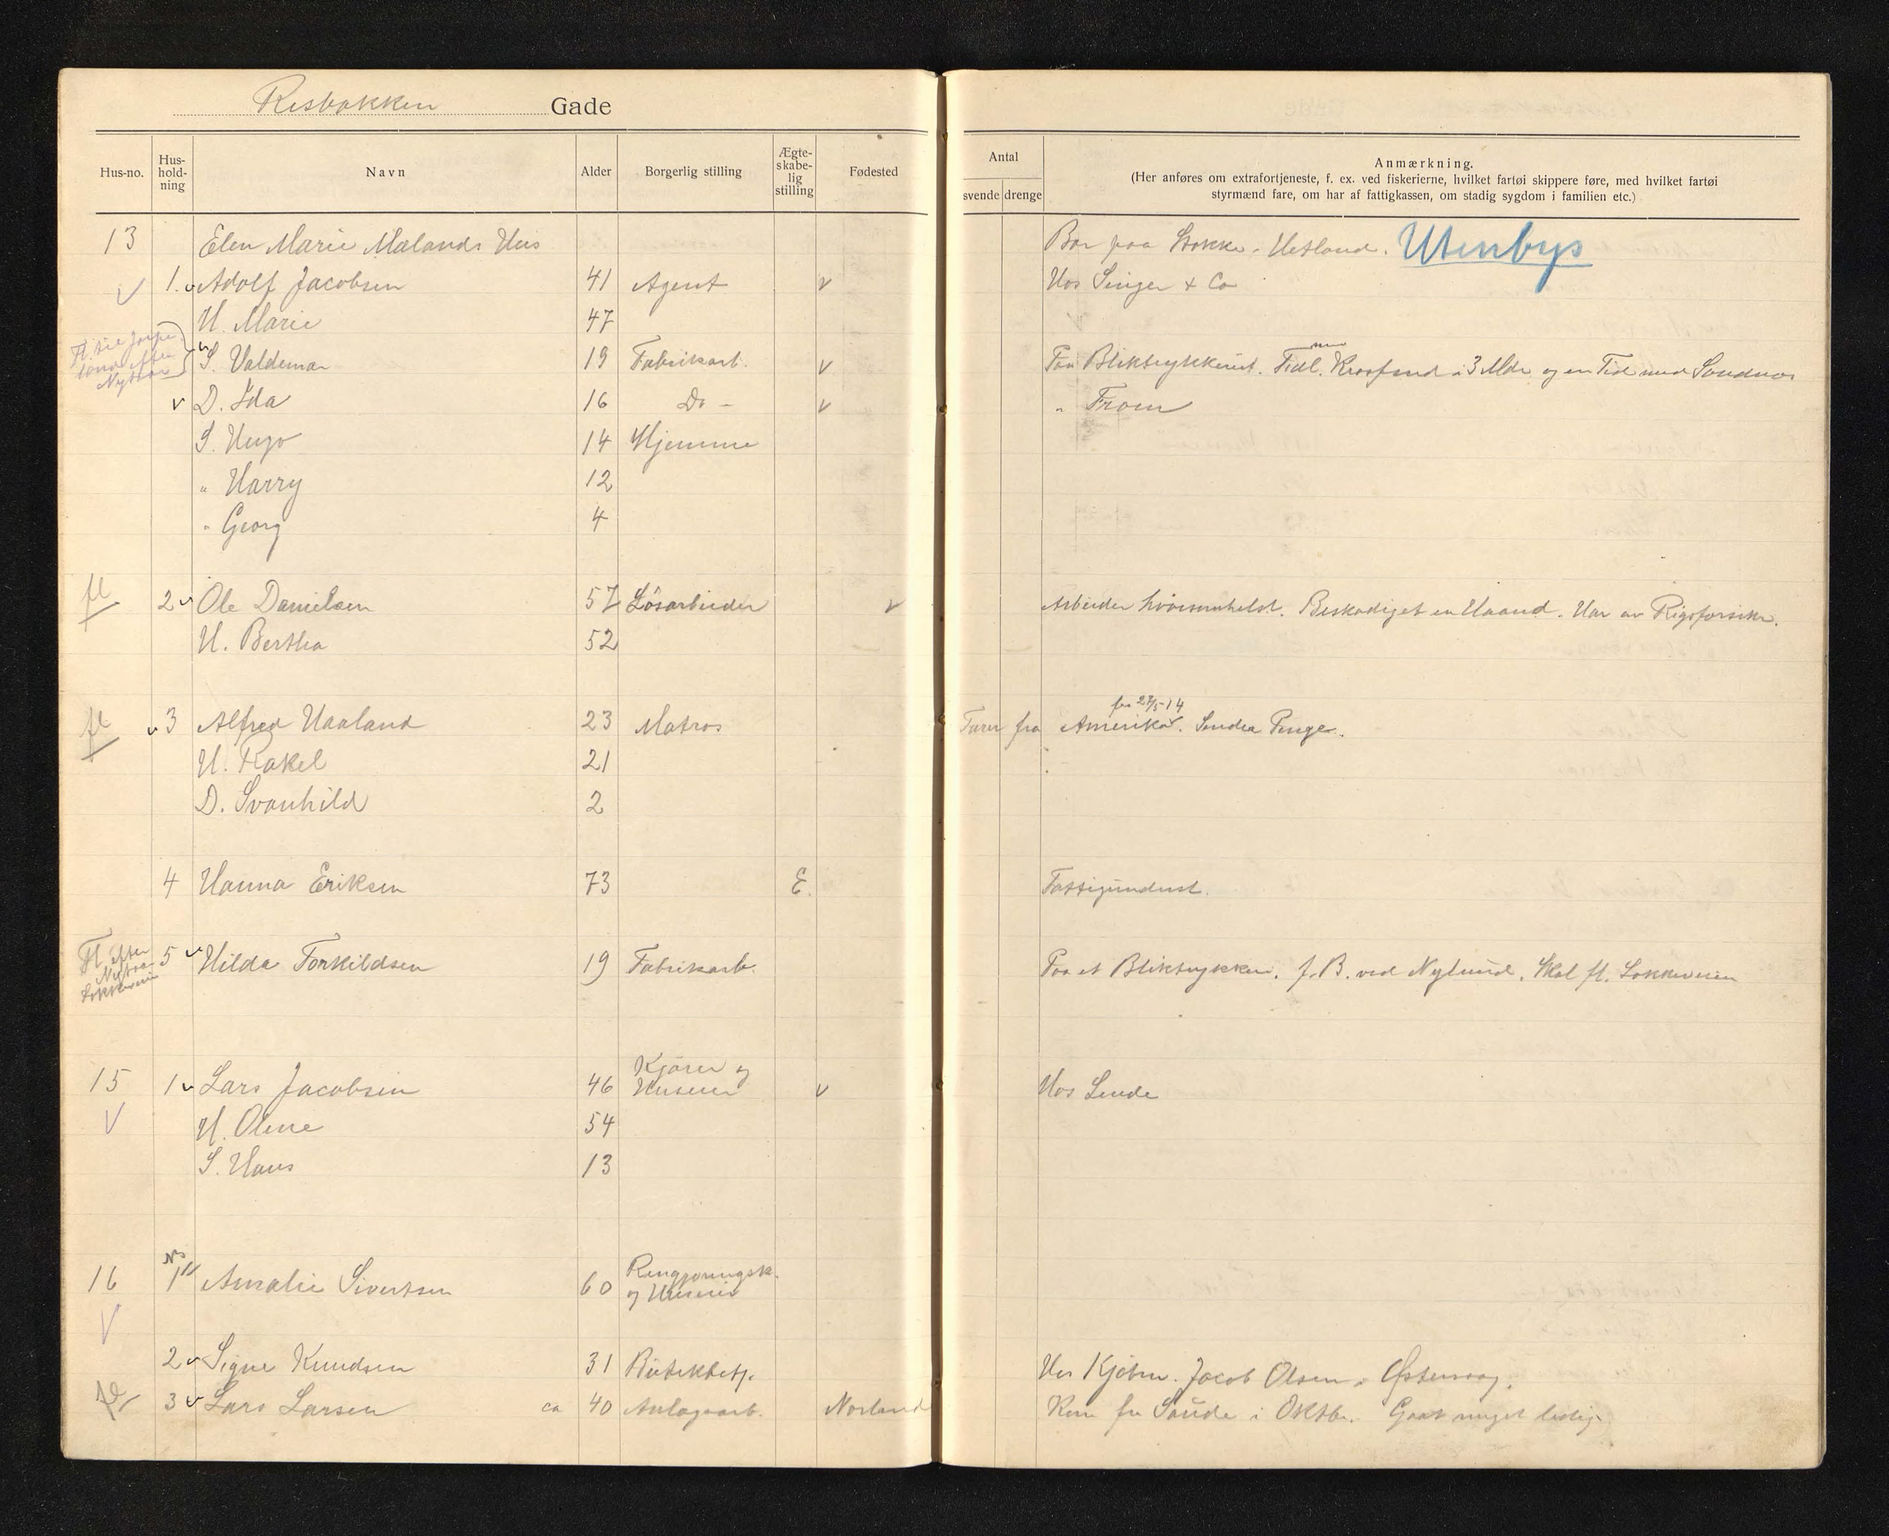 Resbakken Gade
Hus-no. Hus-hold-ning Navn Alder Borgerlig stilling Ægte-skabe-lig stilling Fødested
Antal
svende drenge
Anmærkning.
(Her anføres om extrafortjeneste, f. ex. ved fiskerierne, hvilket fartøi skippere føre, med hvilket fartøi
styrmænd fare, om har af fattigkassen, om stadig sygdom i familien etc.)
13 Elen Marie Mælands Hus Bor paa Stokke, Hetland. Utenbys
1. Adolf Jacobsen 41 Agent Hos Singer + Co
H. Marie 47
S. Valdemar 19 Fabrikarb. Paa Bliktrykkeriet. Fidl. i 3 Mdr og en Tid med Sandnæs
Fl. til
efter
Nyttaar
D. Ida 16 Do - " From
S. Hugo 14 Hjemme
" Harry 12
" Georg 4
fl 2 Ole Danielsen 57 Løsarbeider Arbeider hvorsomhelst. Beskadiget en Haand. Har av Rigsforsikr.
H. Bertha 52
fl 3 Alfred Haaland 23 Matros Farer fra Amerika. Sender Penge.
fra 27/5-14
H. Rakel 21
D. Svanhild 2
4 Hanna Eriksen 73 E. Fattigunderst.
5 Hilda Torkildsen 19 Fabrikarb. Paa et Bliktrykkeri. f. B. ved Nylund. Skal fl. Løkkeveien
Fl. efter
Nytaar
Løkkeveien
15 1 Lars Jacobsen 46 Kjører og Huseier Hos Sende
H. Olene 54
S. Hans 13
16 1 Amalie Sivertsen 60 Rengjøringsk. og Huseier
2 Signe Knudsen 31 Butikbetj. Hos Kjøbm. Jacob Olsen, Østervaag.
3 Lars Larsen ca 40 Anlægsarb. Norland Kom fra Saude i Oktbr. Gaat meget ledig